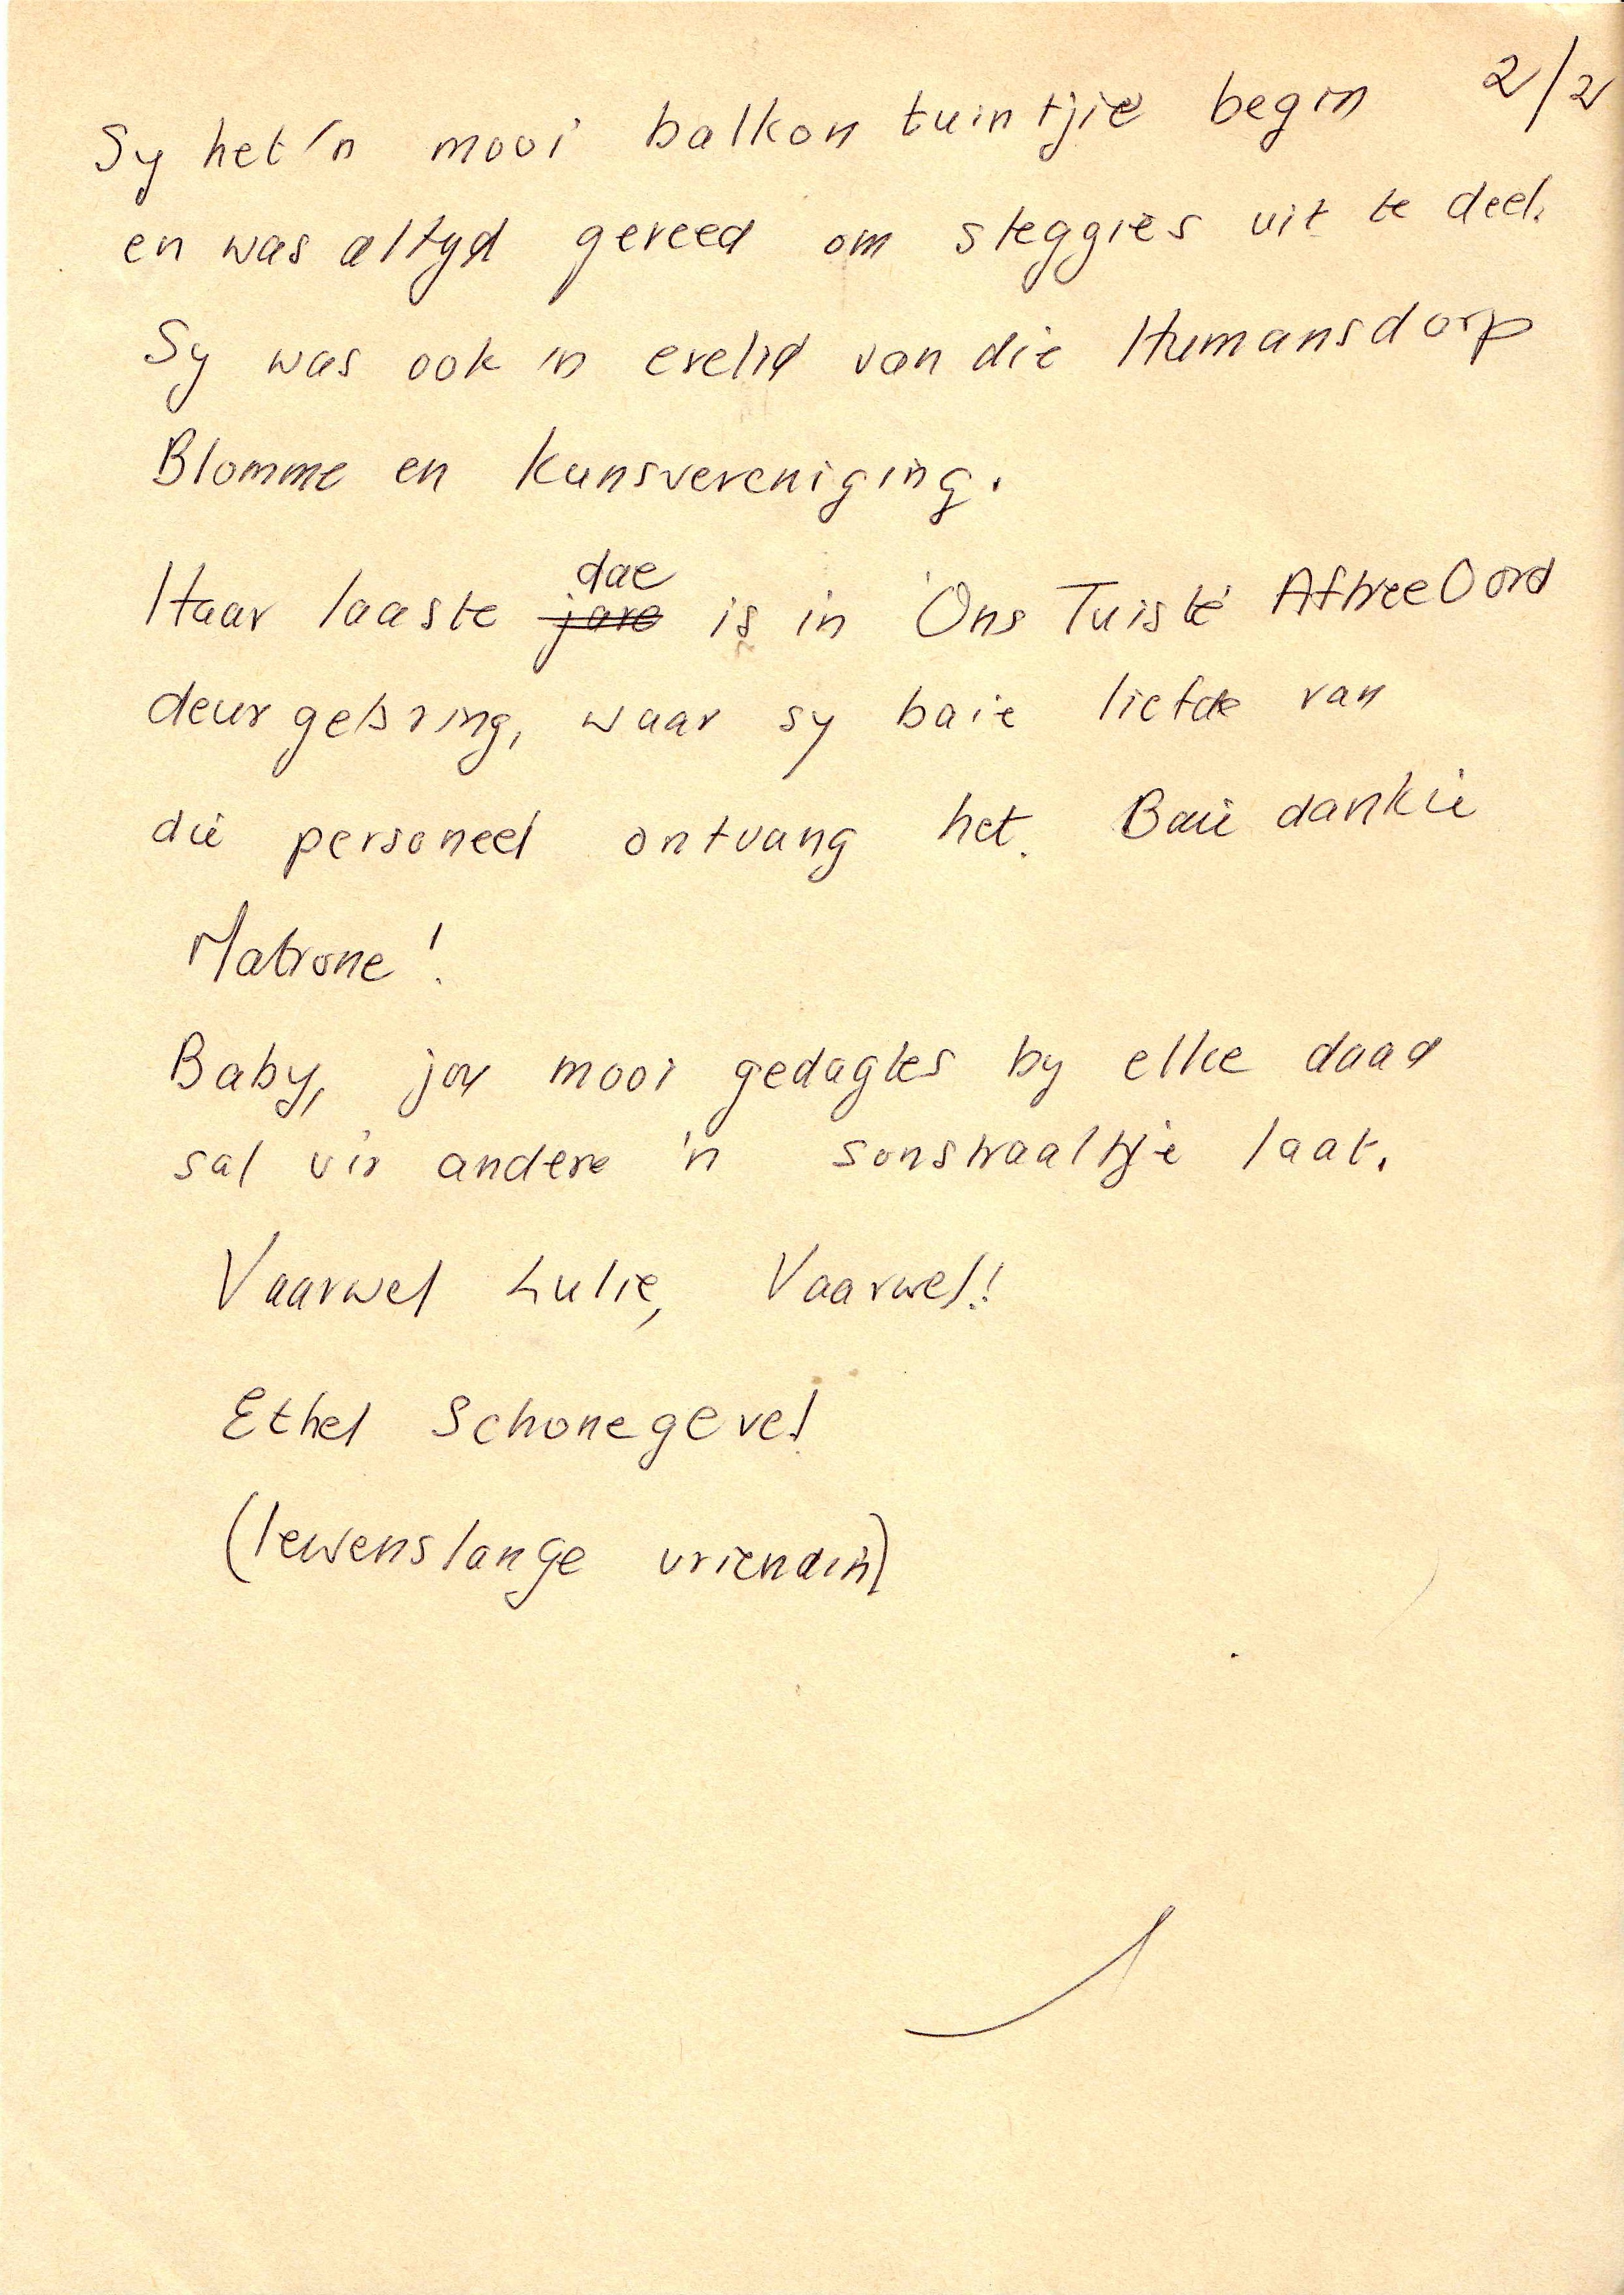 2/2
Sy het 'n mooi balkon tuintjie begin
en was altyd gereed om steggies uit te deel.
Sy was ook 'n erelid van die Humansdorp
Blomme en Kunsvereniging.
dae
Haar laaste jare is in 'Ons Tuiste' AftreeOord
deurgebring, waar sy baie liefde van
die personeel ontvang het. Baie dankie
Matrone!
Baby, jou mooi gedagtes by elke daad
sal vir andere 'n sonstraaltjie laat.
Vaarwel Lulie, Vaarwel!
Ethel Schonegevel
(lewenslange vriendin)